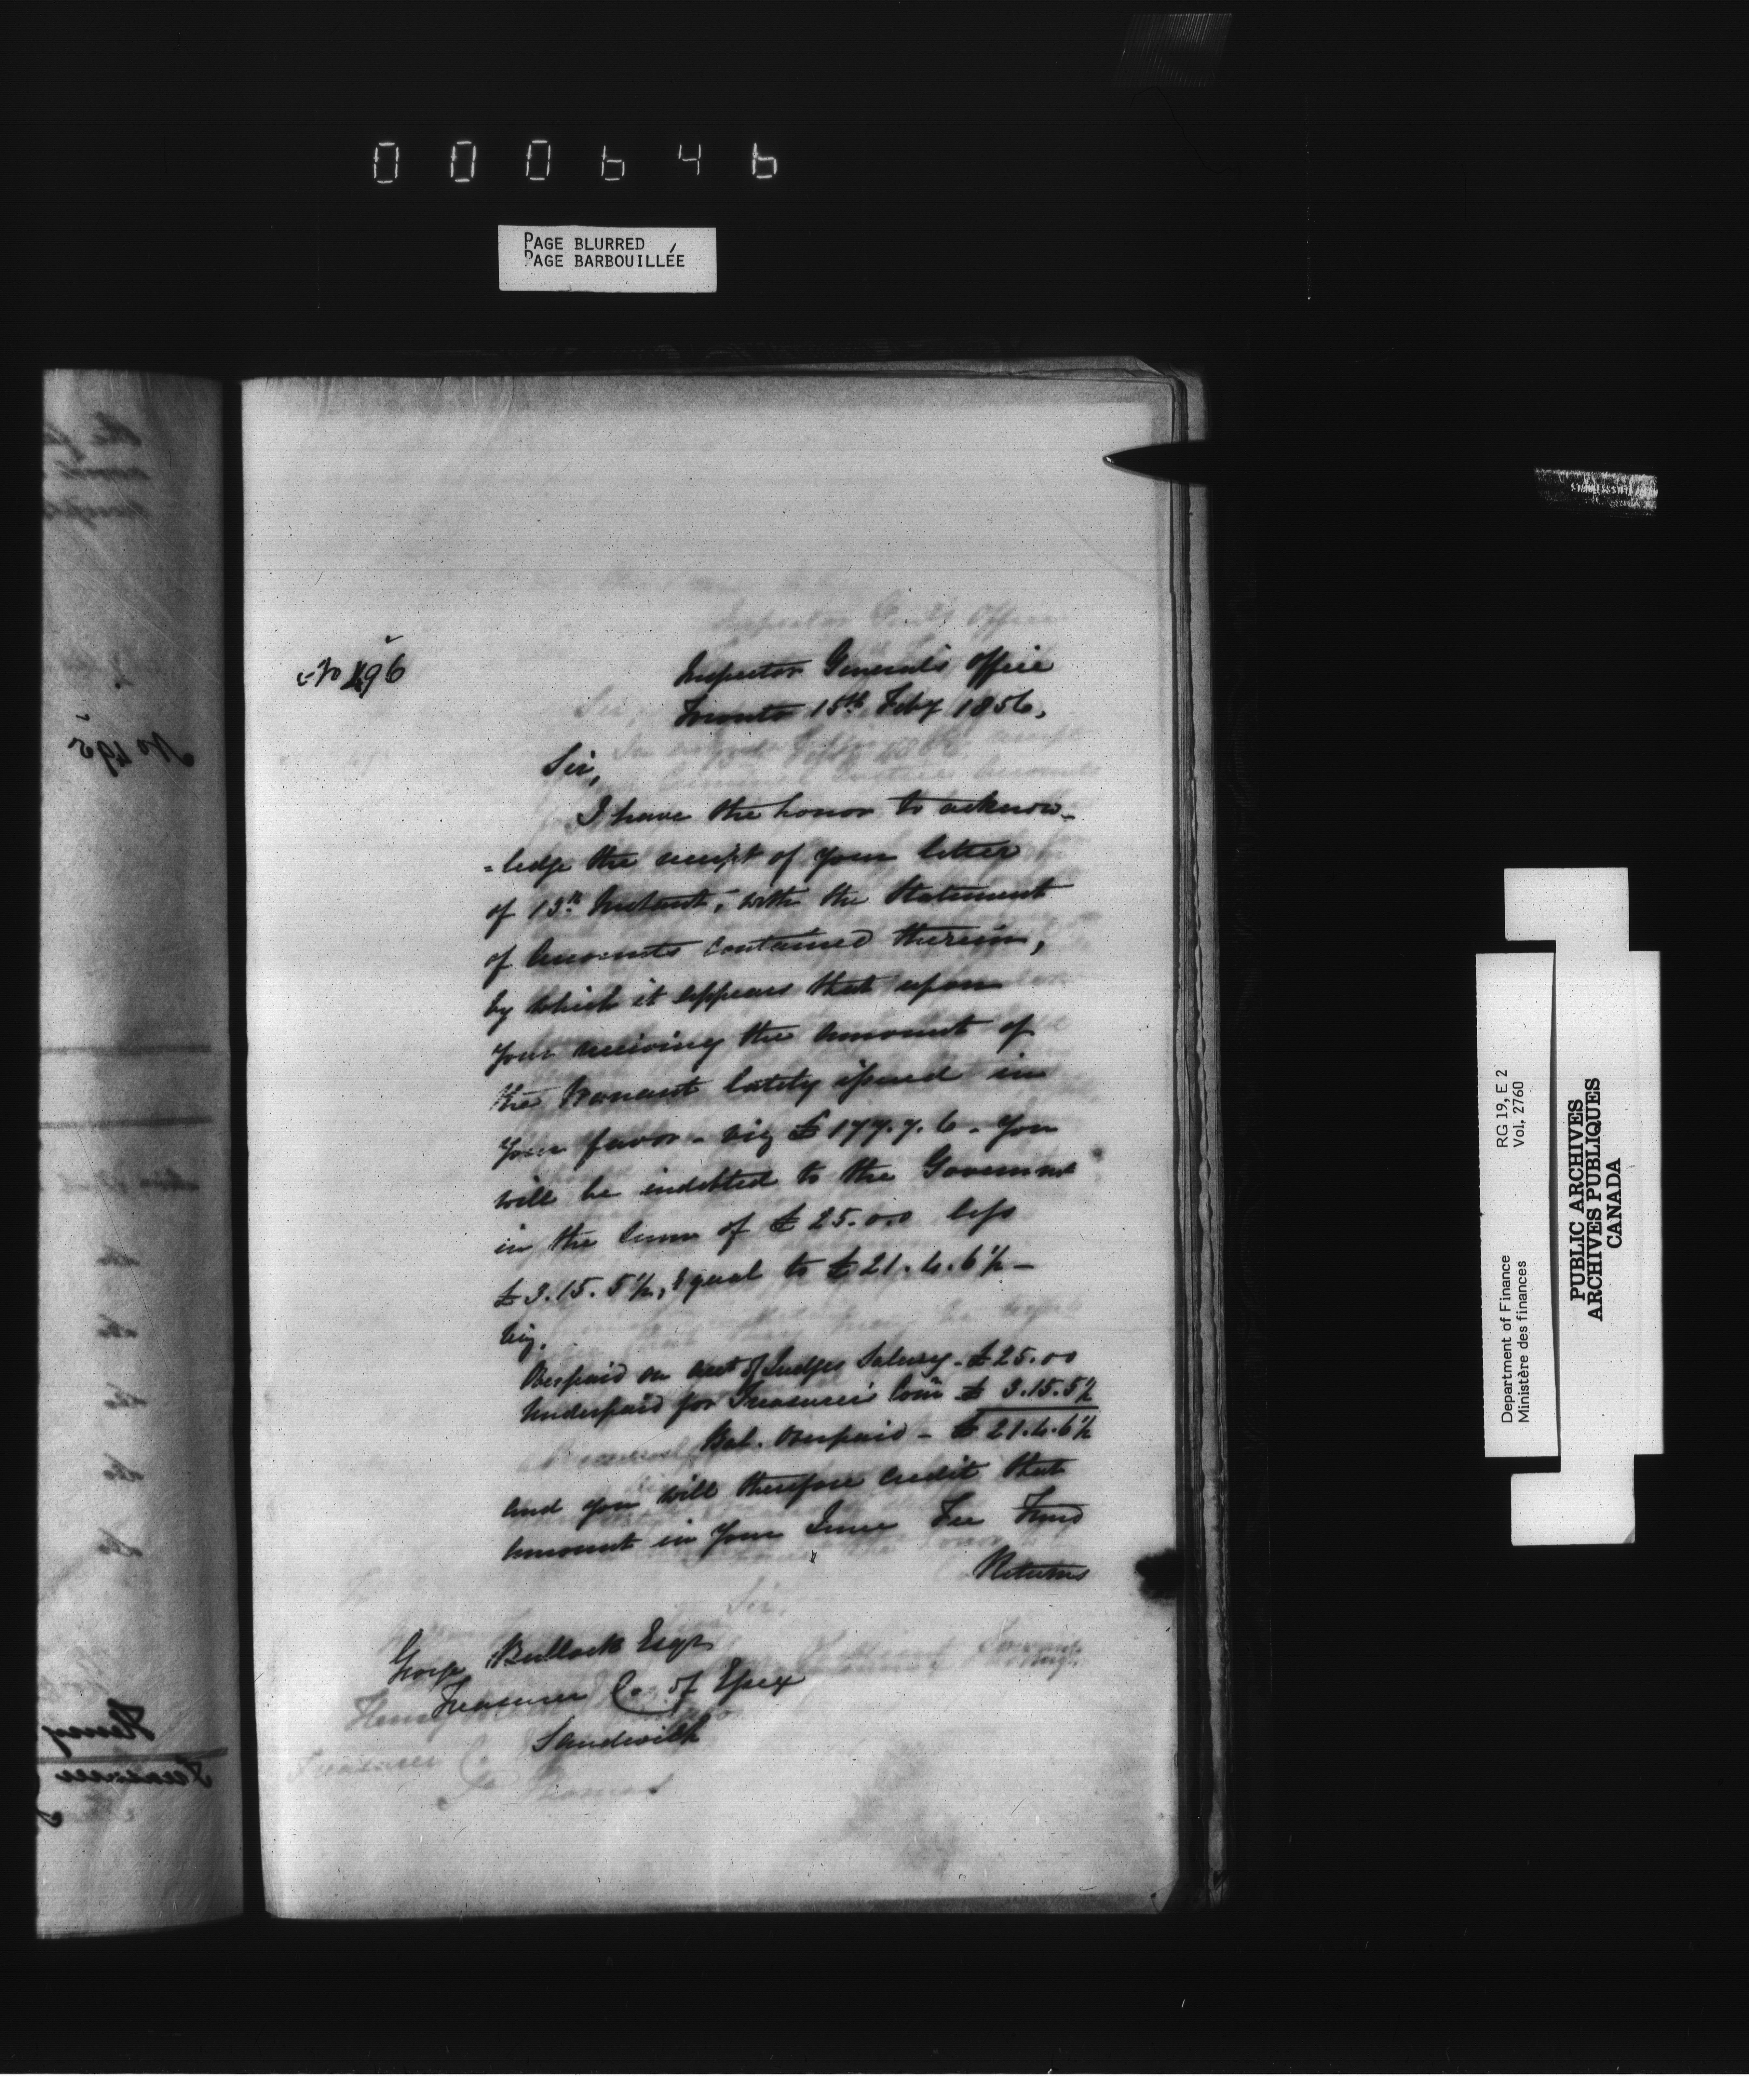 000646
PAGE BLURRED
PAGE BARBOUILLÉE
No 496
Inspector General's Office
Toronto 15th Feby 1856,
Sir,
I have the honor to acknow-
=ledge the receipt of your letter
of 13th Instant, with the Statement
of Accounts contained therein,
by which it appears that upon
your receiving the amount of
the Warrant lately issued in
your favor - viz £177.7.6 - you
will be indebted to the Governmt
in the sum of £25.0.0 less
£3.15.5½, Equal to £21.4.6½ -
Viz.
Overpaid on acct of Judges Salary - £25.00
Underpaid for Treasurer's Comn £ 3.15.5½
Bal. Overpaid - £21.4.6½
and you will therefore credit that
amount in your June Fee Fund
Returns
George Bullock Esqr
Treasurer Co. of Essex
Sandwich
No 495
Henry
Treasurer
Department of Finance RG 19, E 2
Ministère des finances Vol. 2760
PUBLIC ARCHIVES
ARCHIVES PUBLIQUES
CANADA